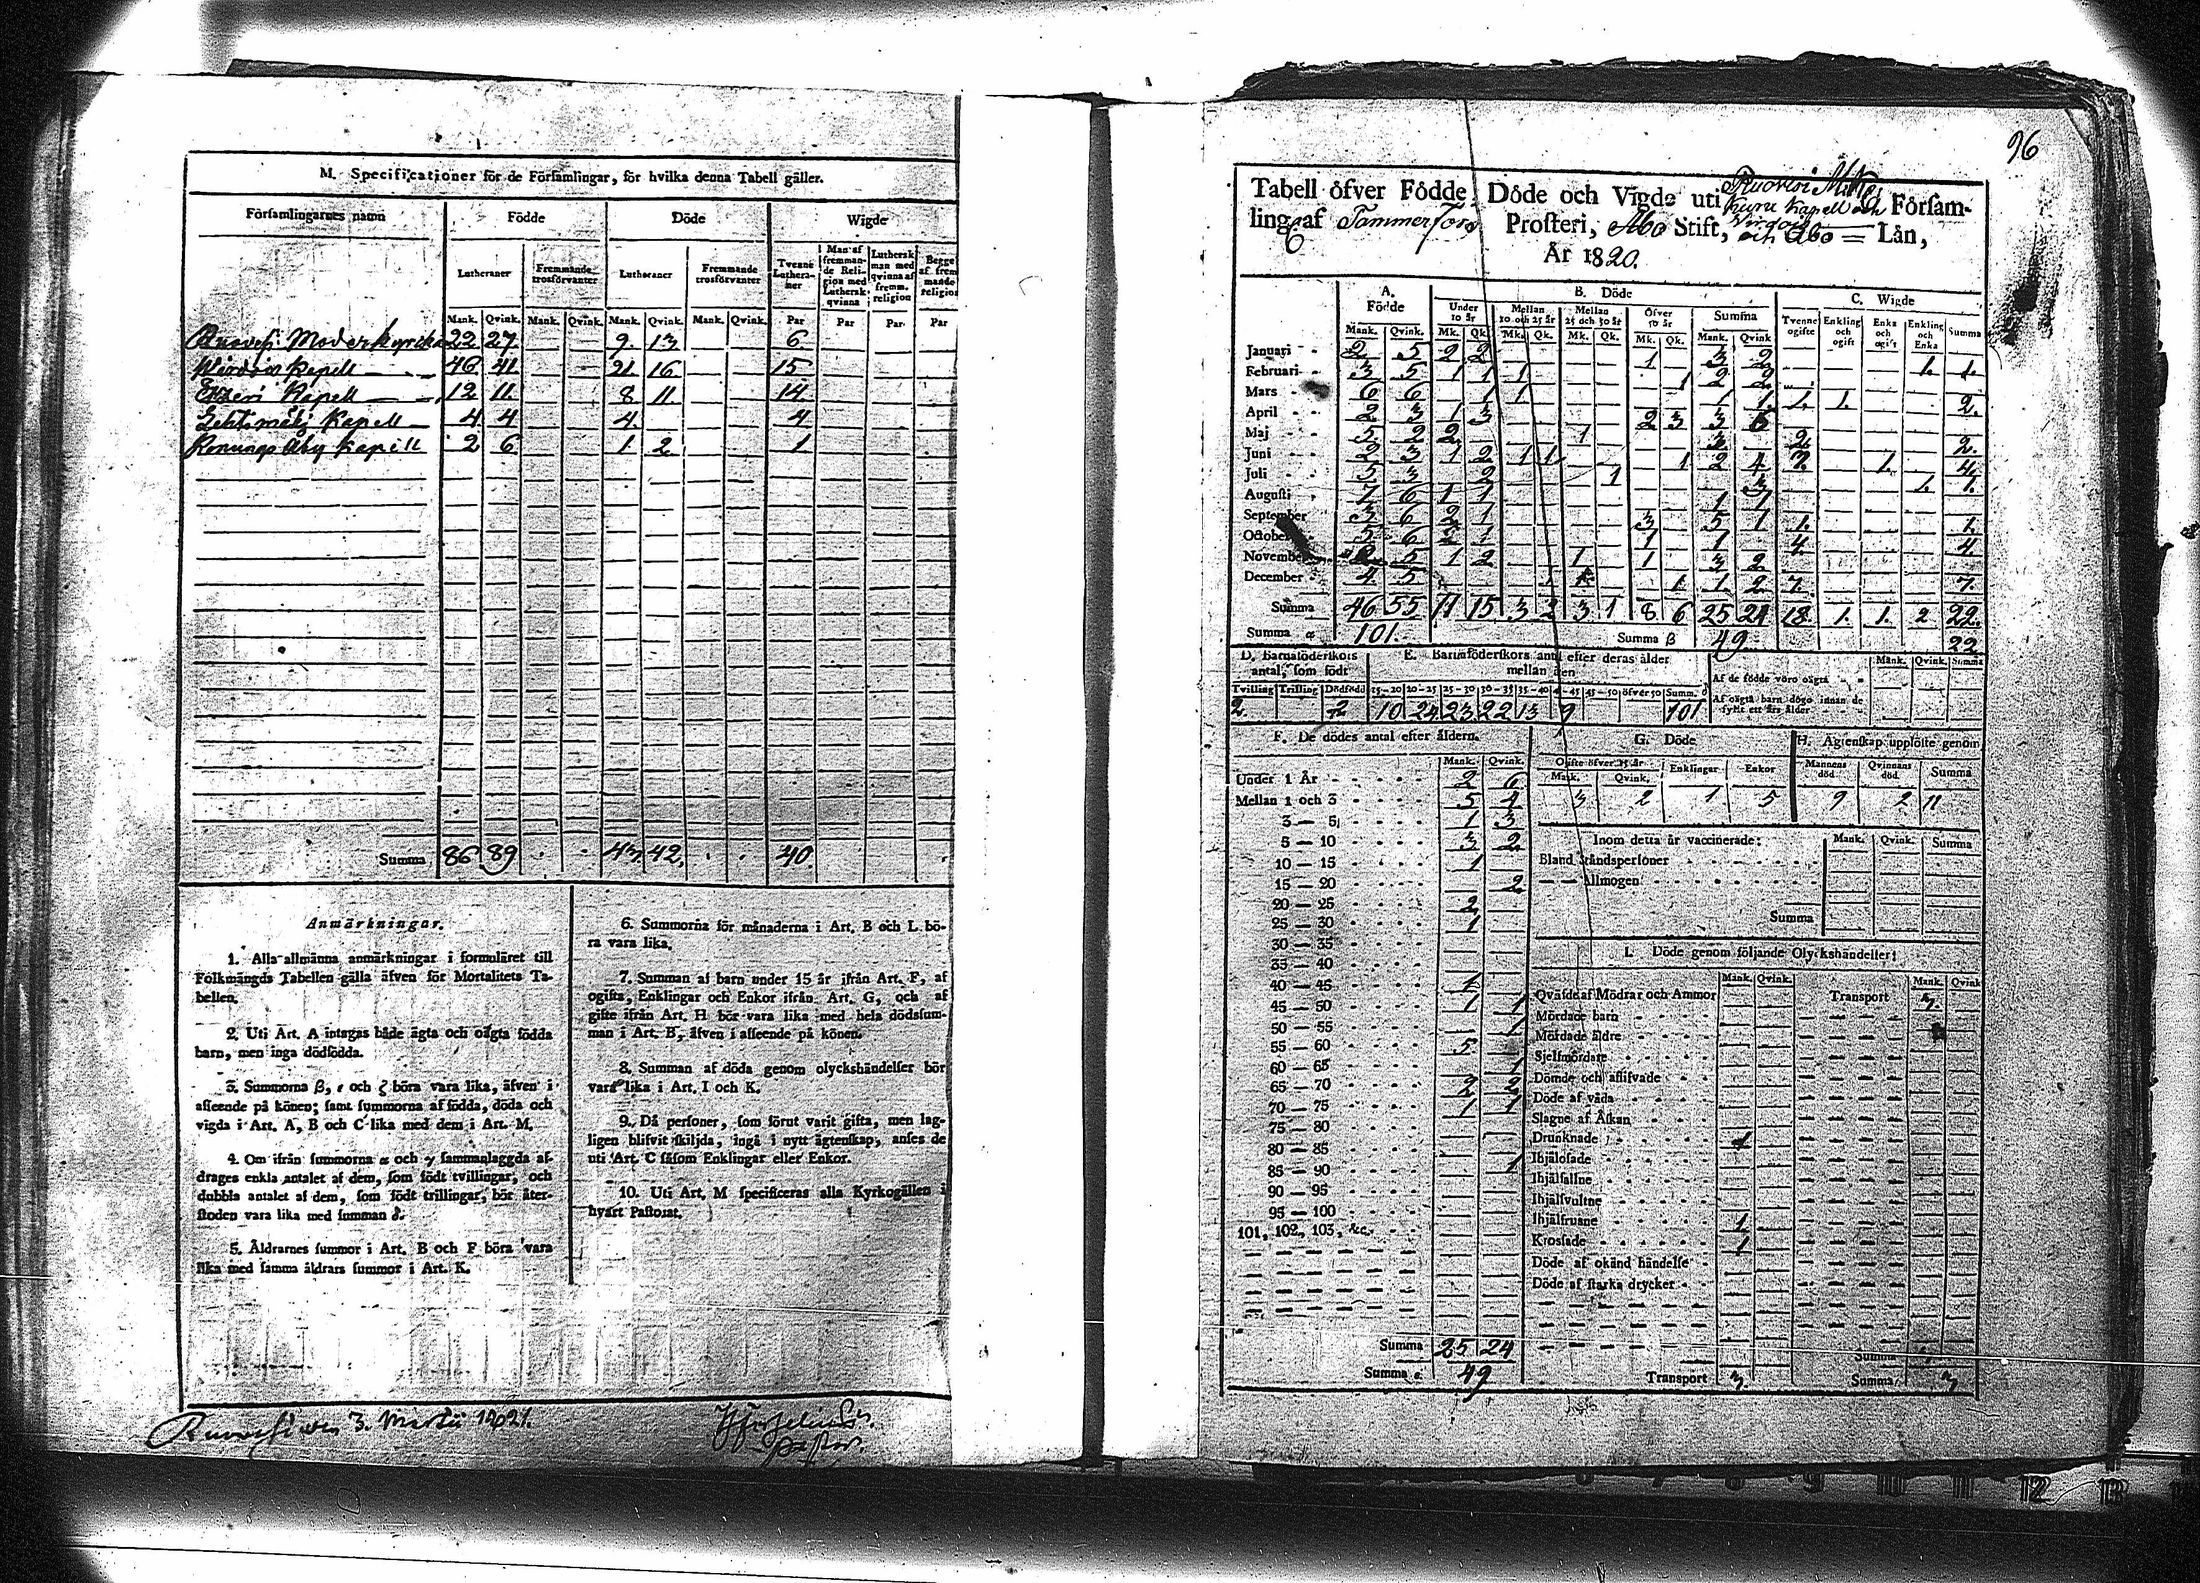 M. Specificationer för de Församlingar, för hvilka denna Tabell gäller.
Församlingarnes namn Födde Döde Wigde
Lutheraner Fremmande trosförvanter Lutheraner Fremmande trosförvanter Tvenne Lutheraner Man af fremmande Religion med Luthersk qvinna Luthersk man med qvinna af fremm. religion Begge af frem mande religion
Mank. Qvink. Mank. Qvink. Mank. Qvink. Mank. Qvink. Par Par Par Par
Ruovesi Moderkyrka 22 27 9. 13 6
Wirdois Kapell 46 41 21 16 15
Etseri Kapell 12 11 8 11 14
Lehtimäki Kapell 4 4 4 4
Konungs Åby Kapell 2 6 1 2 1
Summa 86 89 43 42 40
Anmärkningar.
1. Alla allmänna anmärkningar i formuläret till
Folkmängds Tabellen gälla äfven för Mortalitets Ta-
bellen.
2. Uti Art. A intagas både ägta och oägta födda
barn, men inga dödfödda.
3. Summorna β, ε och ζ böra vara lika, äfven i
afseende på könen; samt summorna af födda, döda och
vigda i Art. A, B och C lika med dem i Art. M.
4. Om ifrån summorna α och γ sammanlaggda af-
drages enkla antalet af dem, som födt tvillingar, och
dubbla antalet af dem, som födt trillingar, bör åter-
stoden vara lika med summan δ.
5. Åldrarnes summor i Art. B och F böra vara
lika med samma åldrars summor i Art. K.
6. Summorna för månaderna i Art. B och L bö-
ra vara lika.
7. Summan af barn under 15 år ifrån Art. F, af
ogifta, Enklingar och Enkor ifrån Art. G, och af
gifte ifrån Art. H bör vara lika med hela dödsum-
man i Art. B, äfven i afseende på könen.
8. Summan af döda genom olyckshändelser bör
vara lika i Art. I och K.
9. Då personer, som förut varit gifta, men lag-
ligen blifvit skiljda, ingå i nytt ägtenskap, anses de
uti Art. C såsom Enklingar eller Enkor.
10. Uti Art. M specificeras alla Kyrkogällen i
hvart Pastorat.
Ruovesi den 3. Martii 1821.
Pastor.
96
Tabell öfver Födde, Döde och Vigde uti Ruovesi Kuru Kapell och Församling
af Tammerfors Prosteri, Åbo Stift, och Åbo Län,
År 1820.
A. Födde B. Döde C. Wigde
Under 10 år Mellan 10 och 25 år Mellan 25 och 50 år Öfver 50 år Summa Tvenne ogifte Enkling och ogift Enka och ogift Enkling och Enka Summa
Mank. Qvink. Mk. Qk. Mk. Qk. Mk. Qk. Mk. Qk. Mank. Qvink
Januari 2 5 2 2 1 3 2 1. 1.
Februari 3 5 1 1 1 1 2 2
Mars 6 6 1 1 1 1 1. 1. 2.
April 2 3 1 3 2 3 3 6
Maj 5 2 2 1 3 2 2.
Juni 2 3 1 2 1 1 1 2 4 3. 1. 4.
Juli 5 3 2 1 3 1. 1.
Augusti 7 6 1 1 1 1
September 3 6 2 1 3 5 1 1. 1.
October 5 6 1 1 4. 4
November 2 5 1 2 1 1 3 2
December 4 5 1 1 1 2 7. 7.
Summa 46 55 11 15 3 2 3 1 8 6 25 24 18 1. 1. 2 22.
Summa α 101. Summa β 49 22
D. Barnaföderskors antal, som födt
E. Barnaföderskors antal efter deras ålder mellan den
Mank. Qvink. Summa
Af de födde voro oägta
Af oägta barn dögo innan de fyllt ett års ålder
Tvilling Trilling Dödfödd 15-20 20-25 25-30 30-35 35-40 40-45 45-50 öfver 50 Summ. δ
2 2 10 24 23 22 13 9 101
F. De dödes antal efter åldern.
Mank. Qvink.
Under 1 År 2 6
Mellan 1 och 3 5 4
3 — 5 1 3
5 — 10 3 2
10 — 15 1
15 — 20 2
20 — 25 2
25 — 30 1
30 — 35
35 — 40
40 — 45 1
45 — 50 1 1
50 — 55 1
55 — 60 5
60 — 65 1
65 — 70 2 2
70 — 75 1 1
75 — 80
80 — 85
85 — 90 1
90 — 95
95 — 100
101, 102, 103, &c.
Summa 25 24
Summa ε 49
G. Döde
Ogifte öfver 15 år Enklingar Enkor
Mank. Qvink.
3 2 1 5
H. Ägtenskap upplöste genom
Mannens död. Qvinnans död. Summa
9 2 11
Inom detta år vaccinerade: Mank. Qvink. Summa
Bland Ståndspersoner
— — Allmogen
Summa
I. Döde genom följande Olyckshändelser:
Mank. Qvink. Mank. Qvink
Qväfde af Mödrar och Ammor Transport
Mördade barn
Mördade äldre
Sjelfmördare
Dömde och aflifvade
Döde af våda
Slagne af Åskan
Drunknade 1
Ihjälosade
Ihjälfallne
Ihjälsvultne
Ihjälfrusne 1
Krossade 1
Döde af okänd händelse
Döde af starka drycker
Summa
Transport 3. Summa 3
12 13